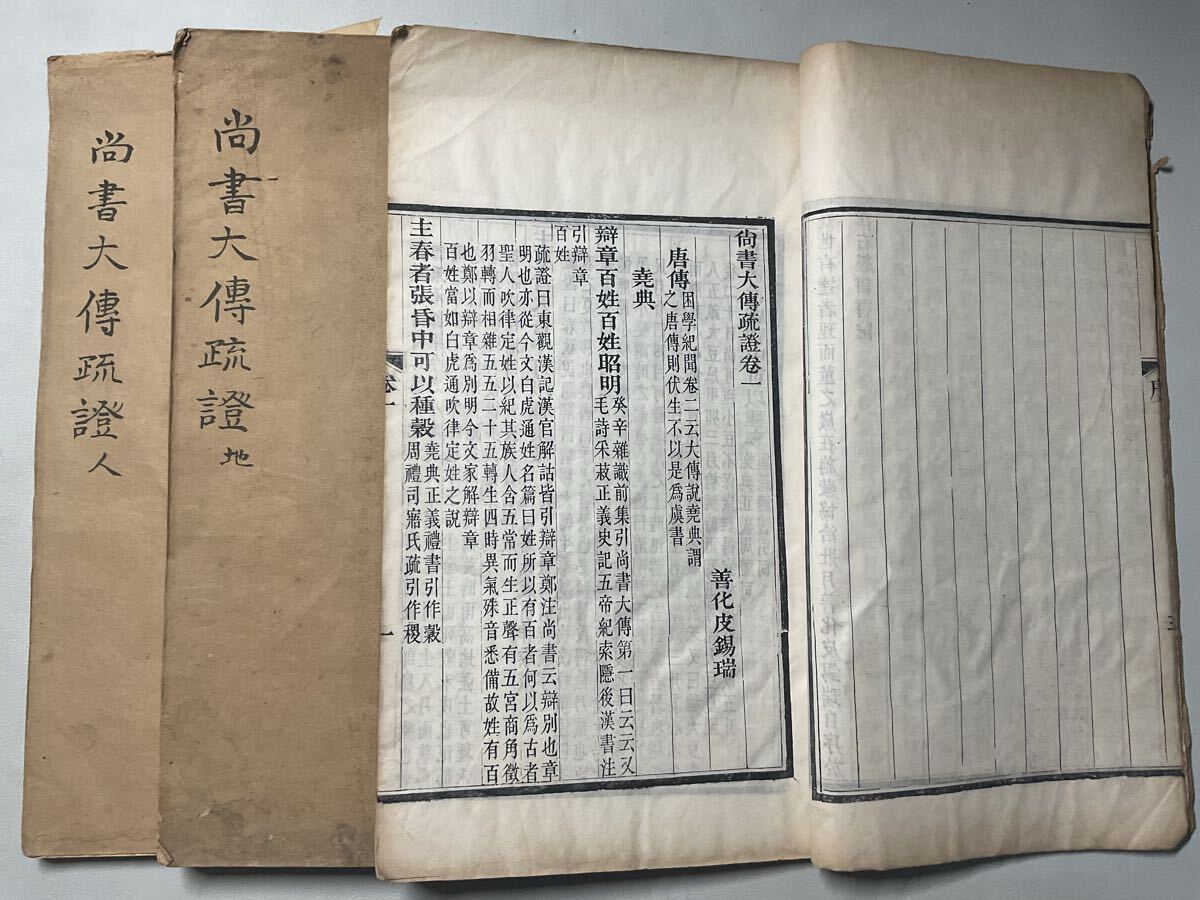 尚書大傳疏證卷一
善化皮錫瑞
唐傳困學紀聞卷二云大傳說堯典謂
之唐傳則伏生不以是爲虞書
堯典
辯章百姓百姓昭明癸辛雜識前集引尚書大傳第一曰云云又
毛詩采菽正義史記五帝紀索隱後漢書注
引辯章
百姓
疏證曰東觀漢記漢官解詁皆引辯章鄭注尚書云辯別也章
明也亦從今文白虎通姓名篇曰姓所以有百者何以爲古者
聖人吹律定姓以紀其族人含五常而生正聲有五宮商角徵
羽轉而相雜五五二十五轉生四時異氣殊音悉備故姓有百
也鄭以辯章爲別明今文家解辯章
百姓當如白虎通吹律定姓之說
主春者張昏中可以種穀堯典正義禮書引作穀
周禮司寤氏疏引作稷
卷一
一
序
三
尚書大傳疏證 地
尚書大傳疏證 人